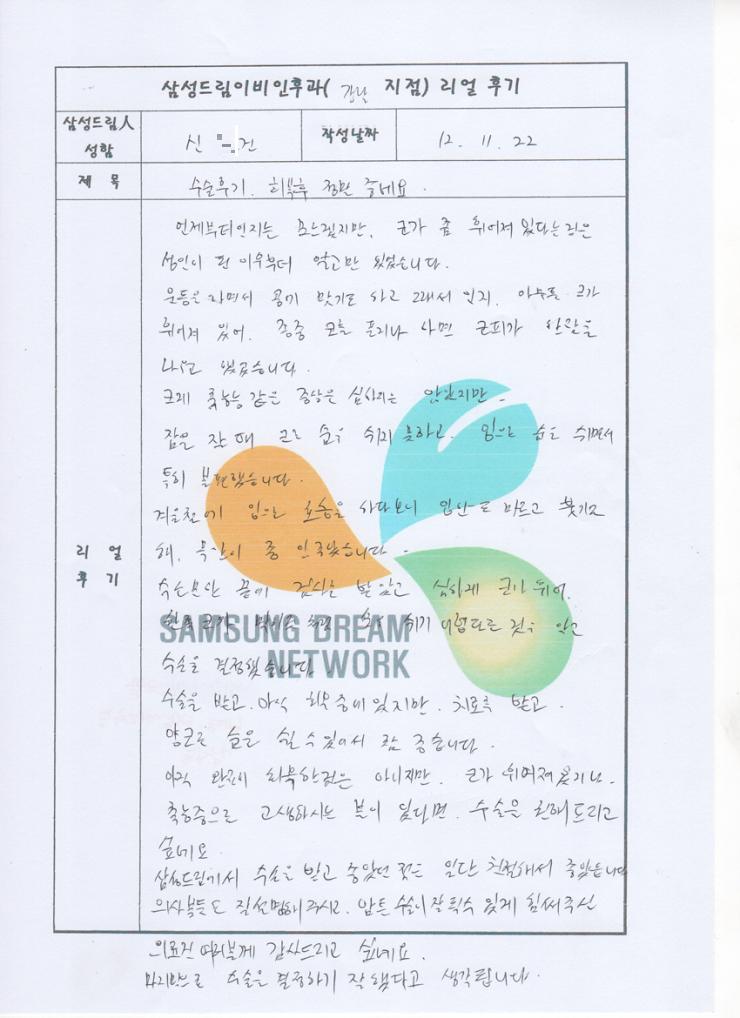 삼성드림이비인후과(강남 지점) 리얼 후기
삼성드림人 성함
신 건
작성날짜
12. 11. 22
제 목
수술후기. 회복후 정말 좋네요.
리 얼 후 기
언제부터인지는 모르겠지만, 코가 좀 휘어져 있다는 것은
성인이 된 이후부터 알고만 있었습니다.
운동을 하면서 공에 맞기도 하고 그래서 인지, 아무튼 코가
휘어져 있어, 종종 코를 풀거나 하면 코피가 한달을
나고 했었습니다.
크게 축농증 같은 증상은 심하지는 않았지만
잠을 잘 때 코로 숨을 쉬지 못하고, 입으로 숨을 쉬면서
특히 불편했습니다.
겨울철에 입으로 호흡을 하다보니 입안도 마르고 붓기도
해, 목감이 좀 안 좋았습니다.
끝에 검사를 받았고 심하게 코가 휘어,
숨을 쉬기 힘들다는 것을 알고
SAMSUNG DREAM
NETWORK
수술을 결정했습니다.
수술을 받고, 아직 회복 중에 있지만, 치료를 받고.
양코로 숨을 쉴 수 있어서 참 좋습니다.
아직 완전히 회복한것은 아니지만, 코가 휘어져 있거나.
축농증으로 고생하시는 분이 있다면, 수술을 권해드리고
싶네요.
삼성드림에서 수술을 받고 좋았던 것은 일단 친절해서 좋았습니다
의사분들도 잘 설명해 주시고, 암튼 수술이 잘 될수 있게 힘써주신
의료진 여러분께 감사드리고 싶네요.
마지막으로 수술을 결정하기 잘 했다고 생각합니다.